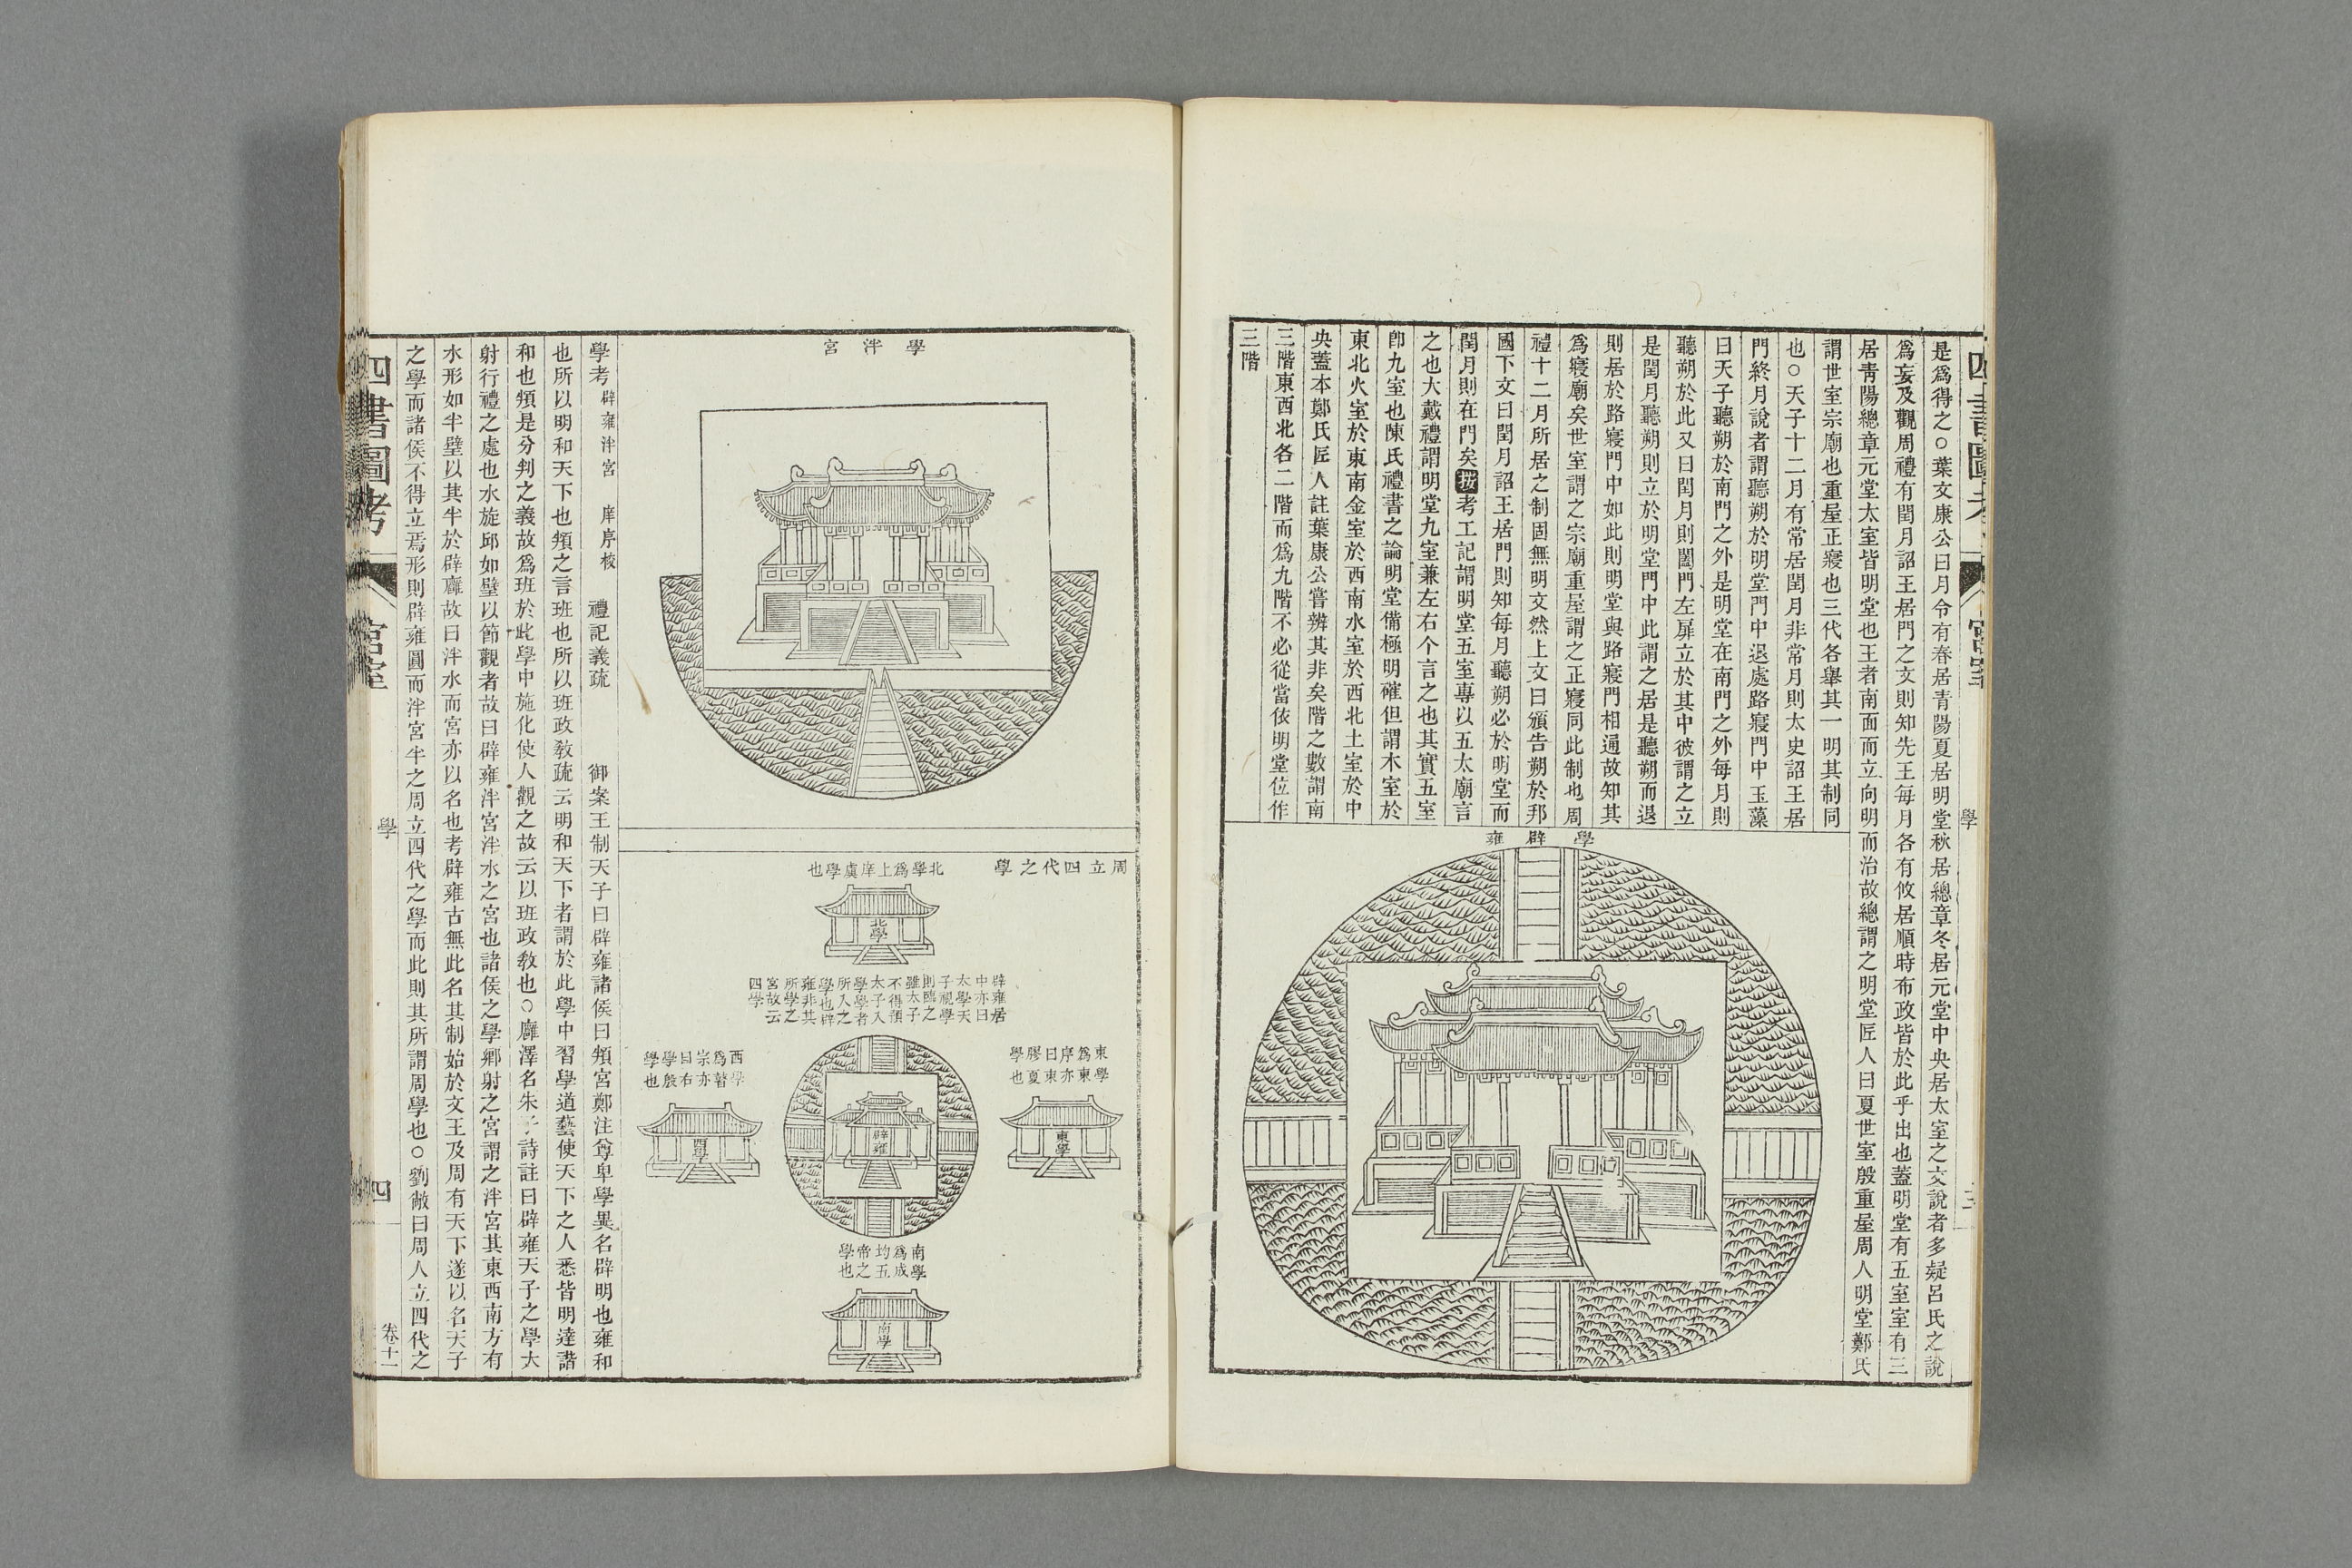 四書圖考
宮室
學
三
是爲得之○葉文康公曰月令有春居青陽夏居明堂秋居總章冬居元堂中央居太室之文說者多疑呂氏之說
爲妄及觀周禮有閏月詔王居門之文則知先王每月各有攸居順時布政皆於此乎出也蓋明堂有五室室有三
居青陽總章元堂太室皆明堂也王者南面而立向明而治故總謂之明堂匠人曰夏世室殷重屋周人明堂鄭氏
謂世室宗廟也重屋正寢也三代各舉其一明其制同
也○天子十二月有常居閏月非常月則太史詔王居
門終月說者謂聽朔於明堂門中退處路寢門中玉藻
曰天子聽朔於南門之外是明堂在南門之外每月則
聽朔於此又曰閏月則闔門左扉立於其中彼謂之立
是閏月聽朔則立於明堂門中此謂之居是聽朔而退
則居於路寢門中如此則明堂與路寢門相通故知其
爲寢廟矣世室謂之宗廟重屋謂之正寢同此制也周
禮十二月所居之制固無明文然上文曰頒告朔於邦
國下文曰閏月詔王居門則知每月聽朔必於明堂而
閏月則在門矣按考工記謂明堂五室專以五太廟言
之也大戴禮謂明堂九室兼左右个言之也其實五室
卽九室也陳氏禮書之論明堂備極明確但謂木室於
東北火室於東南金室於西南水室於西北土室於中
央蓋本鄭氏匠人註葉康公嘗辨其非矣階之數謂南
三階東西北各二階而爲九階不必從當依明堂位作
三階
學辟雍
學泮宮
周立四代之學
北學爲上庠虞學也
北學
辟雍居
中亦曰
太學天
子視學
則臨之
雖太子
不得預
太子入
學學者
所入之
學也辟
雍非其
所學之
宮故云
四學
東學
爲東
序亦
曰東
膠夏
學也
東學
辟雍
西學
爲瞽
宗亦
曰右
學殷
學也
西學
南學
爲成
均五
帝之
學也
南學
學考 辟雍泮宮 庠序校 禮記義疏 御案王制天子曰辟雍諸侯曰頖宮鄭注尊卑學異名辟明也雍和
也所以明和天下也頖之言班也所以班政教疏云明和天下者謂於此學中習學道藝使天下之人悉皆明達諧
和也頖是分判之義故爲班於此學中施化使人觀之故云以班政教也○廱澤名朱子詩註曰辟雍天子之學大
射行禮之處也水旋邱如璧以節觀者故曰辟雍泮宮泮水之宮也諸侯之學鄉射之宮謂之泮宮其東西南方有
水形如半璧以其半於辟廱故曰泮水而宮亦以名也考辟雍古無此名其制始於文王及周有天下遂以名天子
之學而諸侯不得立焉形則辟雍圓而泮宮半之周立四代之學而此則其所謂周學也○劉敞曰周人立四代之
四書圖考
宮室
學
四
卷十一